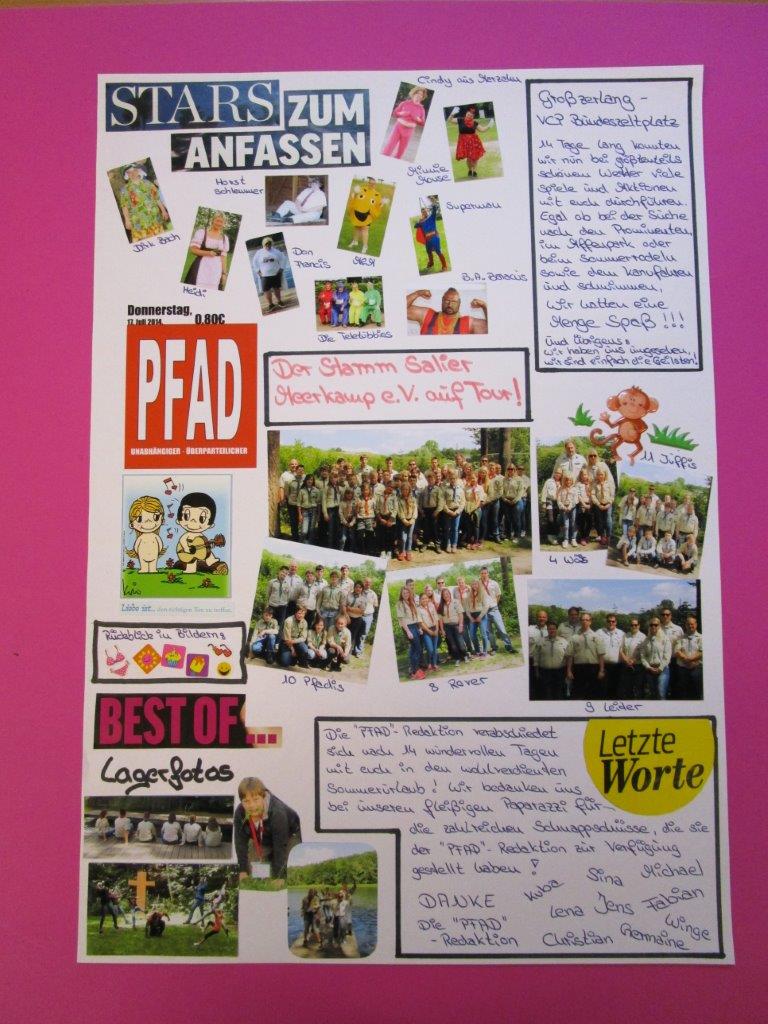 STARS ZUM
ANFASSEN
Cindy aus Marzahn
Minnie
Mouse
Horst
Schlemmer
Superman
Dirk Bach
Heidi
Don
Francis
Die Teletubbies
B.A. Baracus
Großzerlang -
VCP Bundeszeltplatz
14 Tage lang konnten
wir nun bei größtenteils
schönem Wetter viele
Spiele und Aktionen
mit euch durchführen.
Egal ob bei der Suche
nach den Prominenten,
im Affenpark oder
beim Sommerrodeln
sowie dem Kanufahren
und schwimmen,
Wir hatten eine
Menge Spaß!!!
Und Übrigens:
Wir haben uns umgesehen,
wir sind einfach die Geilsten!
Donnerstag,
17. Juli 2014, 0,80€
PFAD
UNABHÄNGIGER · ÜBERPARTEILICHER
Der Stamm Salier
Meerkamp e.V. auf Tour!
11 Jüffis
4 Wös
10 Pfadis
8 Rover
9 Leiter
Liebe ist... den richtigen Ton zu treffen.
Rückblick in Bildern:
BEST OF ...
Lagerfotos
Letzte
Worte
Die "PFAD"-Redaktion verabschiedet
sich nach 14 wundervollen Tagen
mit euch in den wohlverdienten
Sommerurlaub! Wir bedanken uns
bei unseren fleißigen Paparazzi für
die zahlreichen Schnappschüsse, die sie
der "PFAD"-Redaktion zur Verfügung
gestellt haben!
DANKE
Die "PFAD"
-Redaktion
Kuba Sina Michael
Lena Jens Fabian
Christian Germaine Winge